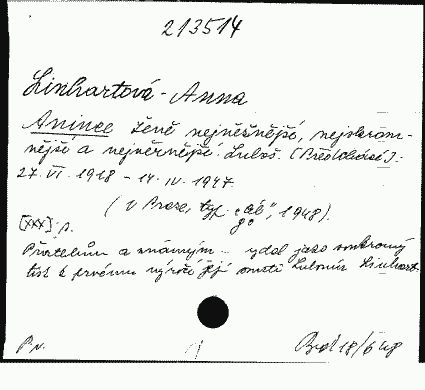 213514
Linhartová - Anna
Anince ženě nejněžnější, nejskrom-
nější a nejvěrnější. Luboš. [Předchází]:
27. VI. 1918 - 14. IV. 1947.
(V Praze, typ. 1948).
[XXX] s.
Přátelům a známým - vydal jako soukromý
tisk k prvému výročí její smrti Lubomír Linhart.
P. N.
18/6 48